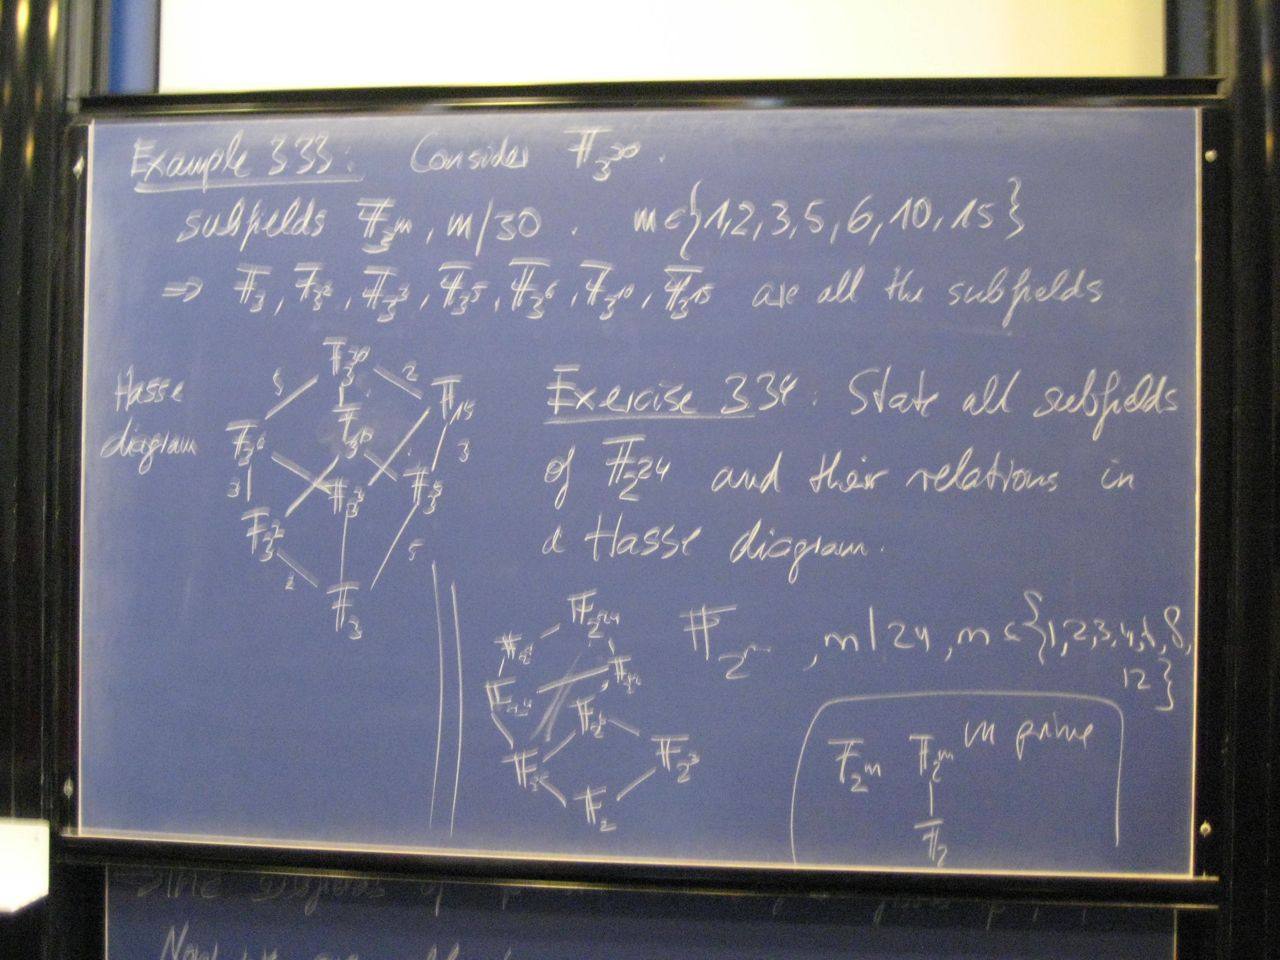 Example 333: Consider 𝔽_3^30.
subfields 𝔽_3^m, m/30. m ∈ {1,2,3,5,6,10,15}
⇒ 𝔽_3, 𝔽_3^2, 𝔽_3^3, 𝔽_3^5, 𝔽_3^6, 𝔽_3^10, 𝔽_3^15 are all the subfields
Hasse
diagram
𝔽_3^30
5
2
𝔽_3^6
𝔽_3^10
𝔽_15
3
3
𝔽_3^2
𝔽_3^3
𝔽_3^5
2
5
𝔽_3
Exercise 334: State all subfields
of 𝔽_2^24 and their relations in
a Hasse diagram.
𝔽_2^24
𝔽_2^8
𝔽_2^12
𝔽_2^4
𝔽_2^6
𝔽_2^2
𝔽_2^3
𝔽_2
𝔽_2^m, m|24, m ∈ {1,2,3,4,6,8,
12}
𝔽_2^m 𝔽_2^m m prime
𝔽_2